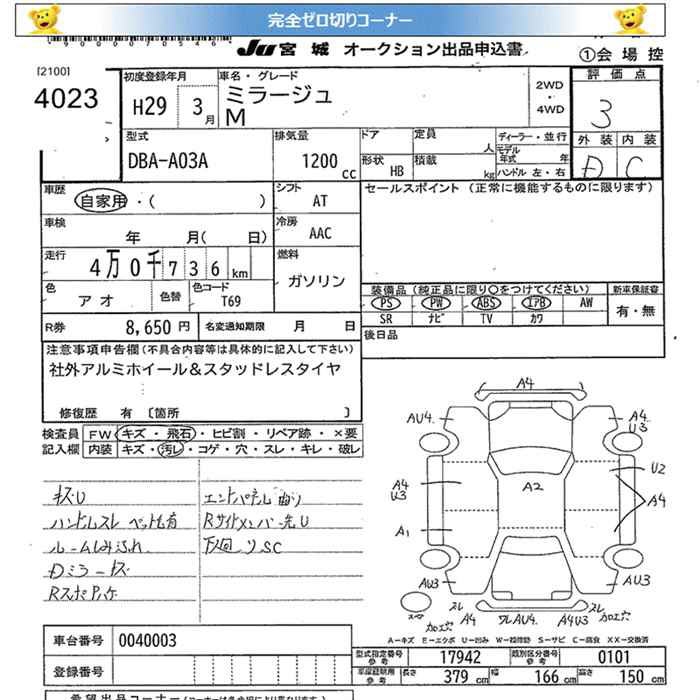 完全ゼロ切りコーナー
9000070546
JU 宮城 オークション出品申込書 ①会場控
[2100]
4023
初度登録年月 車名・グレード
H29 3月 ミラージュ
M
2WD・4WD
評価点
3
外装 内装
D C
型式 排気量 ドア 定員 人 ディーラー・並行
DBA-A03A 1200cc 形状 HB 積載 kg モデル年式 年
ハンドル 左・右
車歴 シフト セールスポイント (正常に機能するものに限ります)
自家用・( ) AT
車検 冷房
年 月( 日) AAC
走行 燃料
4万0千736km ガソリン
色 色替 色コード
アオ T69
装備品(純正品に限り○をつけてください) 新車保証書
PS PW ABS エアB AW 有・無
SR ナビ TV カワ
R券 8,650円 名変通知期限 月 日
後日品
注意事項申告欄(不具合内容等は具体的に記入して下さい)
社外アルミホイール&スタッドレスタイヤ
修復歴 有 〔箇所 〕
検査員 FW キズ・飛石・ヒビ割・リペア跡・×要
記入欄 内装 キズ・汚レ・コゲ・穴・スレ・キレ・破レ
キズU エンドパネル曲り
ハンドルスレ ペットも有 Rサイドメンバー先U
ルームしみよごれ 下廻りSC
Dミラーキズ
Rスポアッケ
A4
AU4 A4 U3
A4 U3 U2
A2
A4
A1
AU3 AU3
スレ A4 ワレAU4 A4U3 スレ
加工穴 加工穴
A-キズ E-エクボ U-凹み W-補修跡 S-サビ C-腐食 XX-交換済
車台番号 0040003
登録番号
型式指定番号 参考 17942 類別区分番号 参考 0101
車庫証明用 参考 長さ 379 cm 幅 166 cm 高さ 150 cm
希望出品コーナー